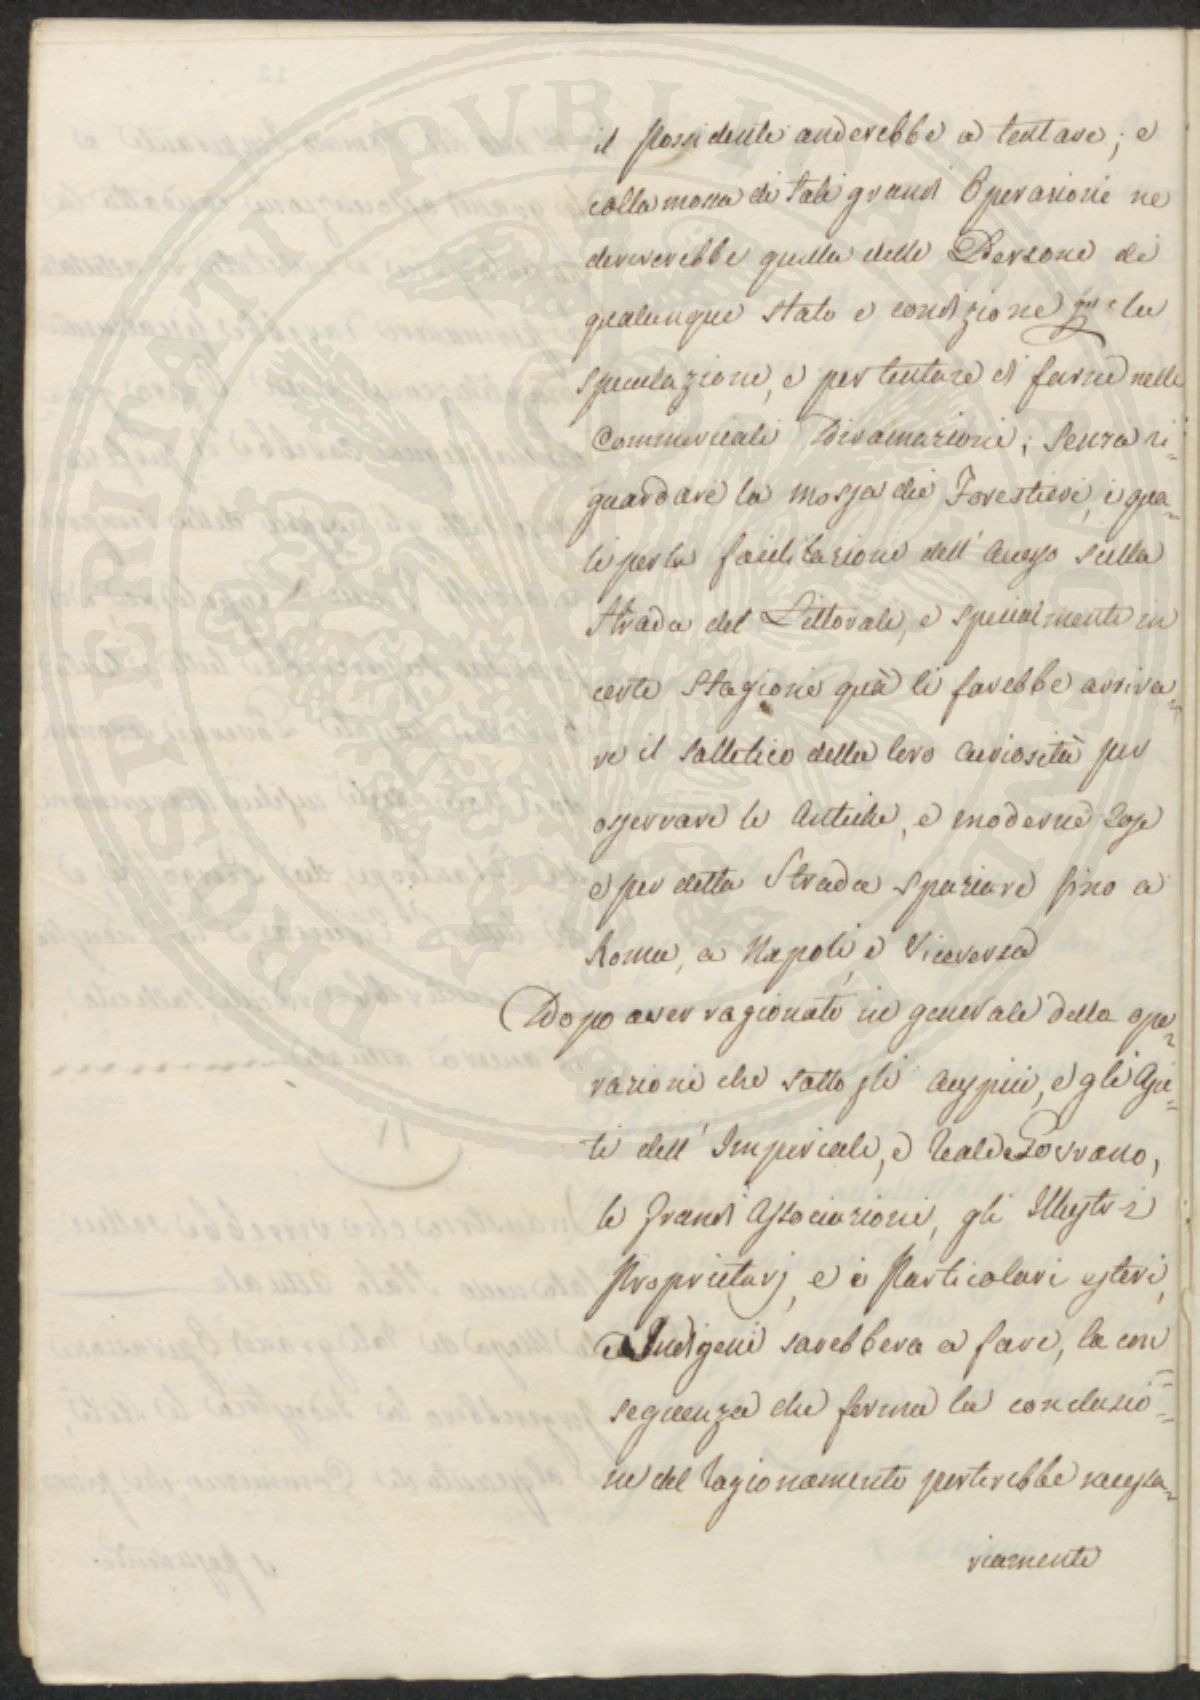 il Possidente anderebbe a tentare; e
colla mossa di tali grandi Operazioni ne
deriverebbe quella delle Persone di
qualunque stato e condizione per la
speculazione, e per tentare di farne nelle
Commerciali Diramazioni; senza ri=
guardare la mossa dei Forestieri, i qua=
li per la facilitazione dell' accesso sulla
Strada del Littorale, e specialmente in
certe Stagioni quà li farebbe arriva=
re il solletico della loro curiosità per
osservare le Antiche, e moderne Cose
e per detta Strada spaziare fino a
Roma, a Napoli, e Viceversa
Dopo aver ragionato in generale della ope=
razioni che sotto gli auspici, e gli Aju=
ti dell' Imperiale, e Reale Sovrano,
le Grandi Associazioni, gli Illustri
Proprietarj, e i Particolari esteri,
e Indigeni sarebbero a fare, la con=
seguenza che ferma la conclusio=
ne del Ragionamento porterebbe necessa=
riamente
PROSPERITATI PVBLICAE